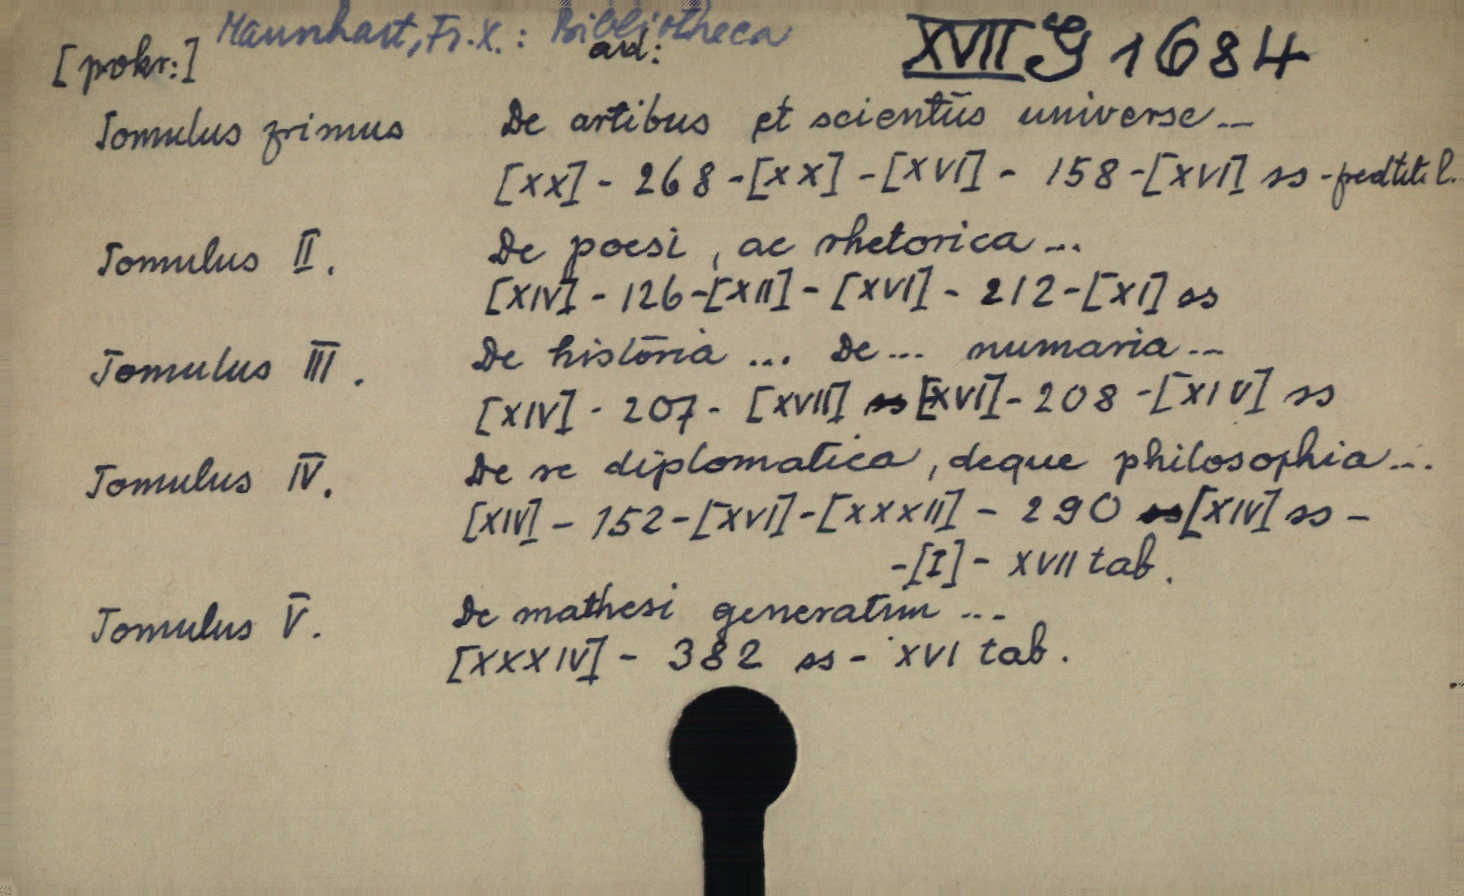 Mannhart, Fr. X. : Bibliotheca
[pokr:] ad: XVII G 1684
Tomulus primus De artibus et scientiis universe...
[XX] - 268 - [XX] - [XVI] - 158 - [XVI] ss - předtit. l.
Tomulus II. De poesi, ac rhetorica ...
[XIV] - 126 - [XII] - [XVI] - 212 - [XI] ss
Tomulus III. De historia ... De ... numaria ...
[XIV] - 207 - [XVII] ss [XVI] - 208 - [XIV] ss
Tomulus IV. De re diplomatica, deque philosophia ...
[XIV] - 152 - [XVI] - [XXXII] - 290 ss [XIV] ss -
- [I] - XVII tab.
Tomulus V. De mathesi generatim ...
[XXXIV] - 382 ss - XVI tab.